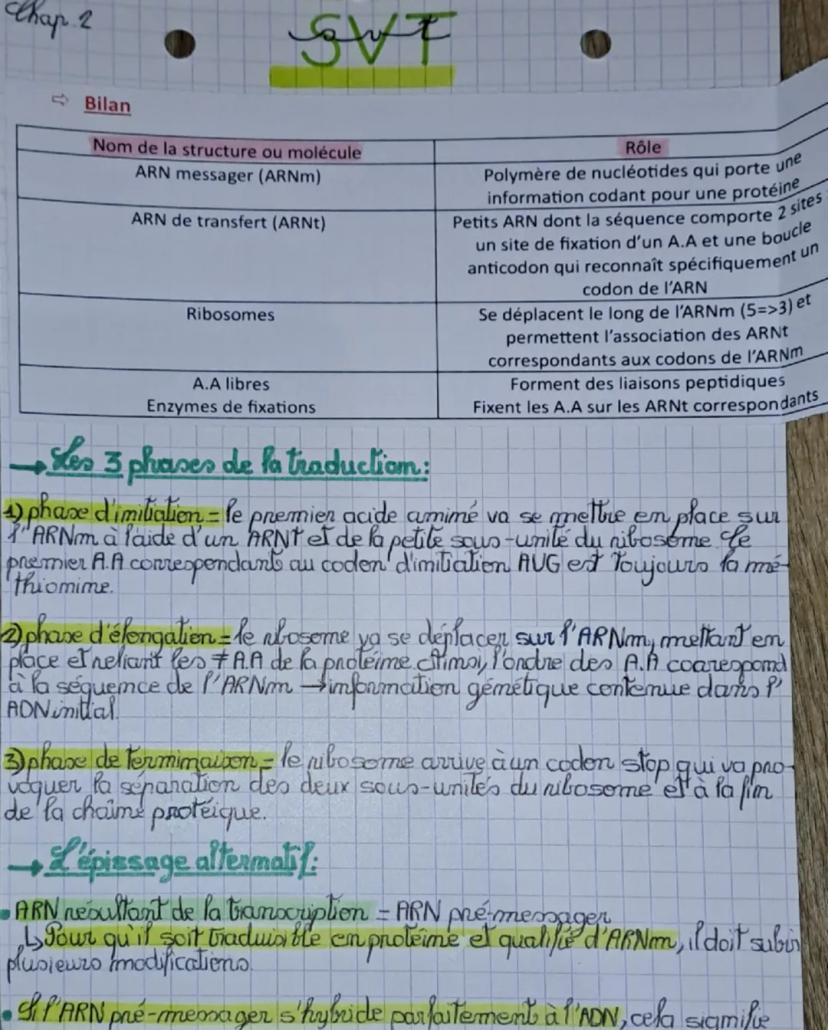 Chap. 2
SVT
svt
⇨ Bilan
Nom de la structure ou molécule
Rôle
ARN messager (ARNm)
Polymère de nucléotides qui porte une
information codant pour une protéine
ARN de transfert (ARNt)
Petits ARN dont la séquence comporte 2 sites
un site de fixation d'un A.A et une boucle
anticodon qui reconnaît spécifiquement un
codon de l'ARN
Ribosomes
Se déplacent le long de l'ARNm (5=>3) et
permettent l'association des ARNt
correspondants aux codons de l'ARNm
A.A libres
Forment des liaisons peptidiques
Enzymes de fixations
Fixent les A.A sur les ARNt correspondants
→ Les 3 phases de la traduction:
1) phase d'initiation = le premier acide aminé va se mettre en place sur
l'ARNm à l'aide d'un ARNt et de la petite sous-unité du ribosome. Le
premier A.A correspendant au coden d'initiation AUG est toujours la mé-
thionine.
2) phase d'élongation = le ribosome va se déplacer sur l'ARNm, mettant en
place et reliant les ≠ A.A de la protéine. Ainsi, l'ordre des A.A coarespond
à la séquence de l'ARNm → information génétique contenue dans l'
ADN initial.
3) phase de terminaison = le ribosome arrive à un codon stop qui va pro-
voquer la séparation des deux sous-unités du ribosome et à la fin
de la chaîne protéique.
→ L'épissage alternatif:
• ARN résultant de la transcription = ARN pré-messager
↳ Pour qu'il soit traduisible en protéine et qualifié d'ARNm, il doit subir
plusieurs modifications.
• Si l'ARN pré-messager s'hybride parfaitement à l'ADN, cela signifie